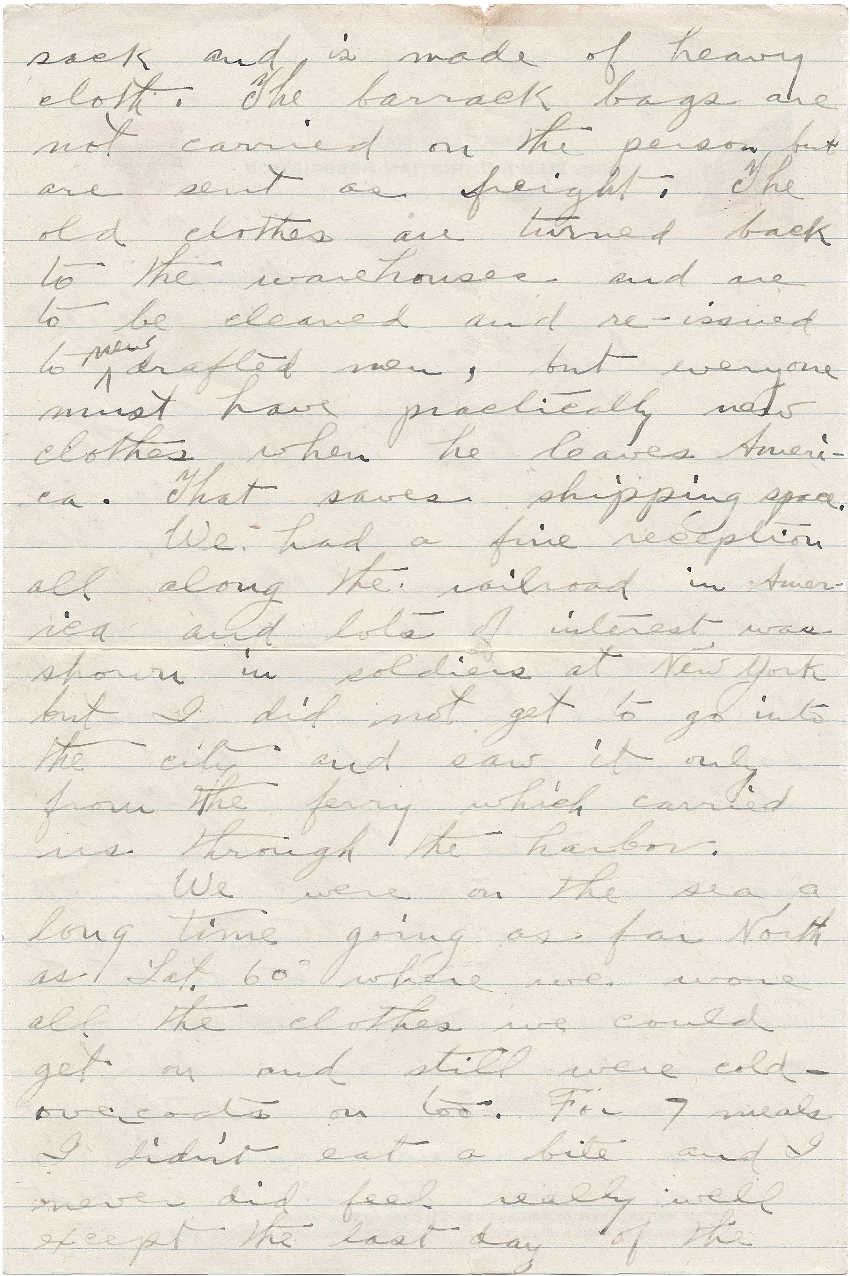 sack and is made of heavy
cloth. The barrack bags are
not carried on the person but
are sent as freight. The
old clothes are turned back
to the warehouses and are
to be cleaned and re-issued
to new drafted men, but everyone
must have practically new
clothes when he leaves Ameri-
ca. That saves shipping space.
We had a fine reception
all along the railroad in Amer-
ica and lots of interest was
shown in soldiers at New York
but I did not get to go into
the city and saw it only
from the ferry which carried
us through the harbor.
We were on the sea a
long time going as far North
as Lat. 60° where we wore
all the clothes we could
get on and still were cold-
overcoats on too. For 7 meals
I didn't eat a bite and I
never did feel really well
except the last day of the